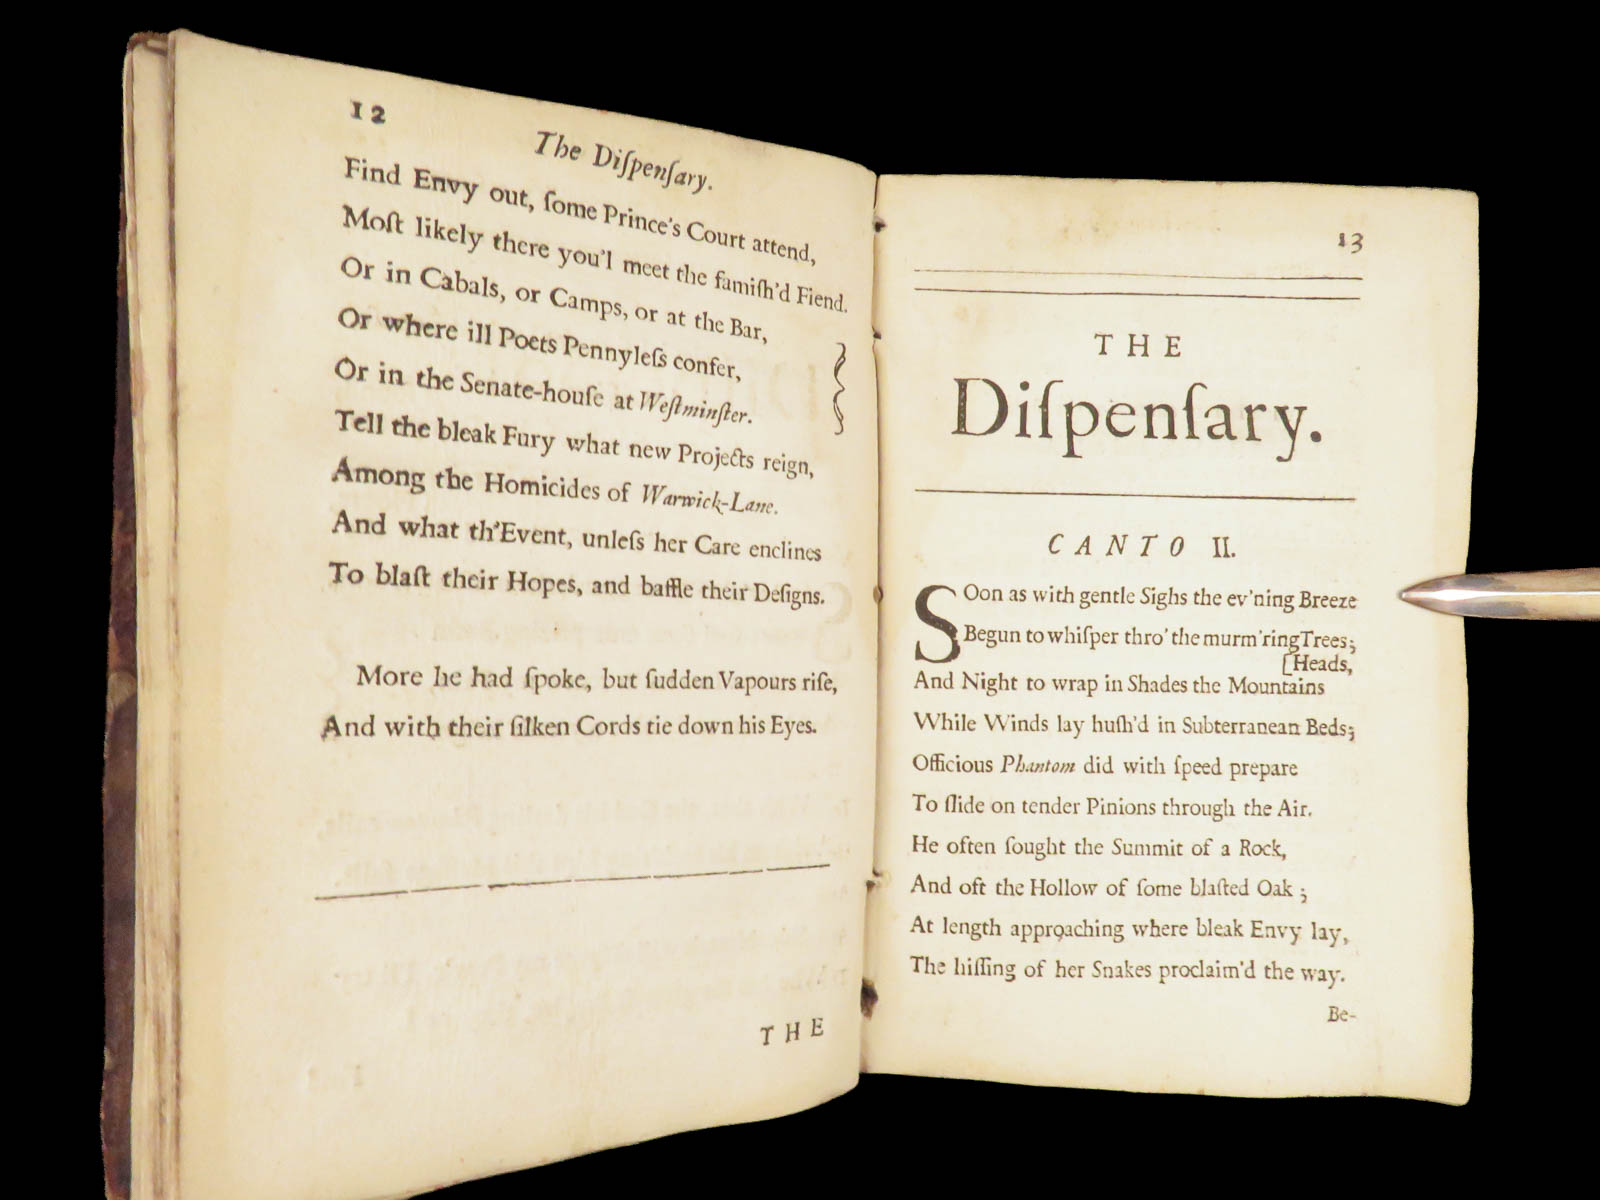 12
The Diſpenſary.
Find Envy out, ſome Prince's Court attend,
Moſt likely there you'l meet the famiſh'd Fiend.
Or in Cabals, or Camps, or at the Bar,
Or where ill Poets Pennyleſs confer,
Or in the Senate-houſe at Weſtminſter.
Tell the bleak Fury what new Projects reign,
Among the Homicides of Warwick-Lane.
And what th'Event, unleſs her Care enclines
To blaſt their Hopes, and baffle their Deſigns.
More he had ſpoke, but ſudden Vapours riſe,
And with their ſilken Cords tie down his Eyes.
THE
13
THE
Diſpenſary.
CANTO II.
SOon as with gentle Sighs the ev'ning Breeze
Begun to whiſper thro' the murm'ring Trees;
[Heads,
And Night to wrap in Shades the Mountains
While Winds lay huſh'd in Subterranean Beds;
Officious Phantom did with ſpeed prepare
To ſlide on tender Pinions through the Air.
He often ſought the Summit of a Rock,
And oft the Hollow of ſome blaſted Oak ;
At length approaching where bleak Envy lay,
The hiſſing of her Snakes proclaim'd the way.
Be-